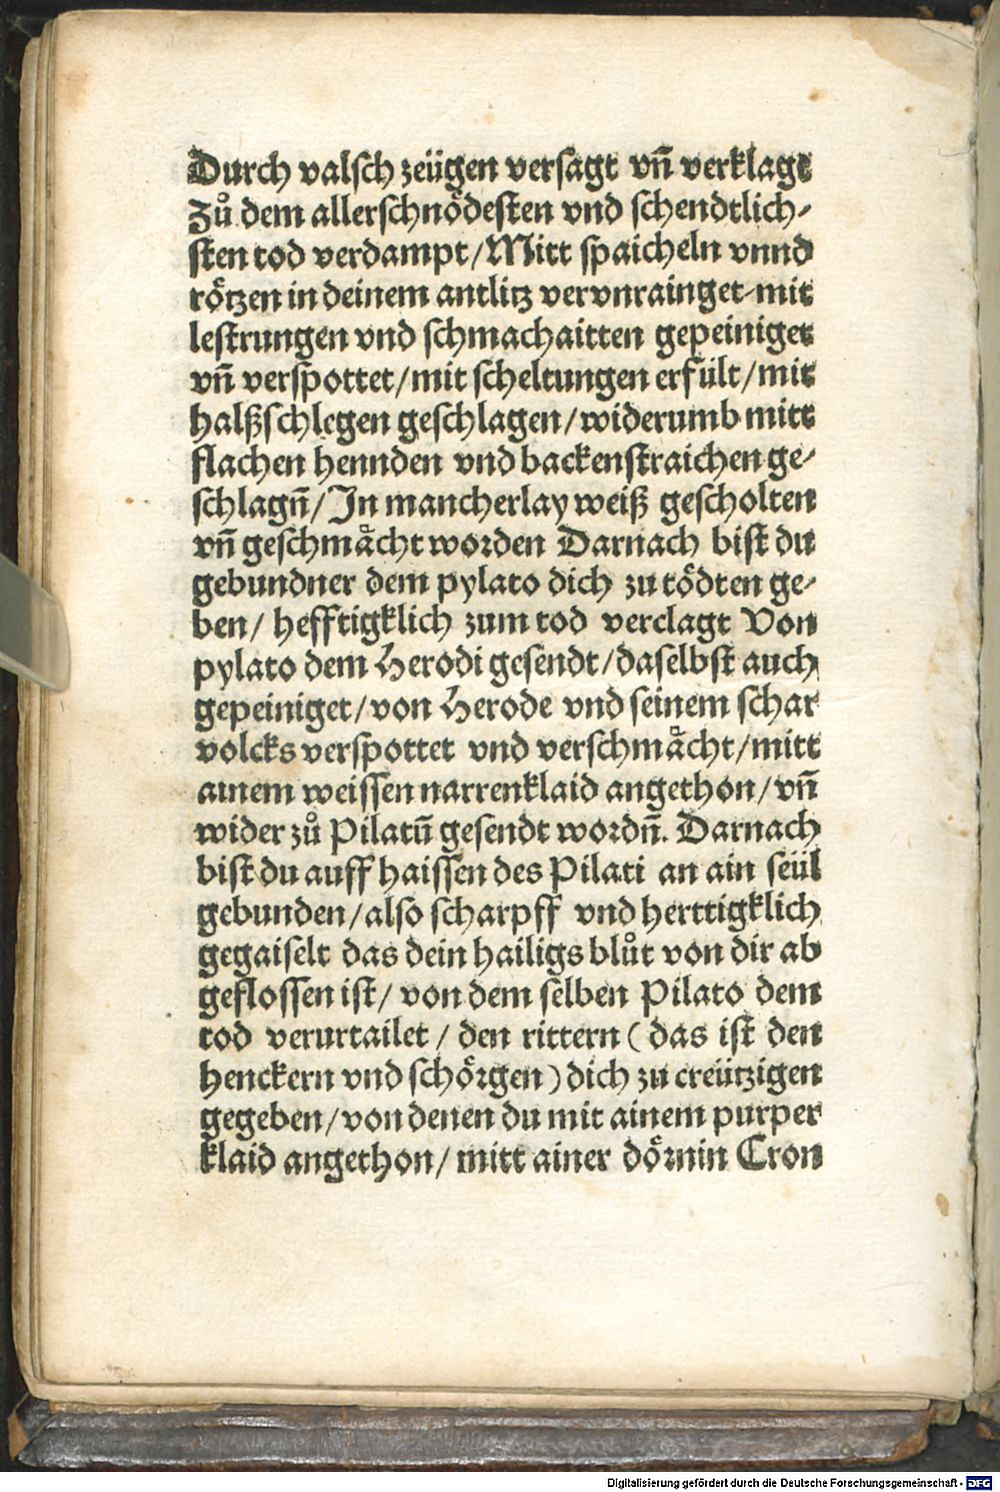 Durch valsch zeügen versagt vñ verklagt
Zů dem allerschnödesten vnd schendtlich⸗
sten tod verdampt/Mitt spaicheln vnnd
rötzen in deinem antlitz vervnrainget⸗mit
lestrungen vnd schmachaitten gepeiniget
vñ verspottet/mit scheltungen erfült/mit
halßschlegen geschlagen/widerumb mitt
flachen hennden vnd backenstraichen ge⸗
schlagñ/In mancherlay weiß gescholten
vñ geschmaͤcht worden Darnach bist du
gebundner dem pylato dich zu tödten ge⸗
ben/ hefftigklich zum tod verclagt Von
pylato dem Herodi gesendt/daselbst auch
gepeiniget/von Herode vnd seinem schar
volcks verspottet vnd verschmaͤcht/mitt
ainem weissen narrenklaid angethon/vñ
wider zů Pilatū gesendt wordñ. Darnach
bist du auff haissen des Pilati an ain seül
gebunden/also scharpff vnd herttigklich
gegaiselt das dein hailigs blůt von dir ab
geflossen ist/ von dem selben Pilato dem
tod verurtailet / den rittern ( das ist den
henckern vnd schörgen ) dich zu creützigen
gegeben/von denen du mit ainem purper
klaid angethon/ mitt ainer dörnin Cron
Digitalisierung gefördert durch die Deutsche Forschungsgemeinschaft - DFG